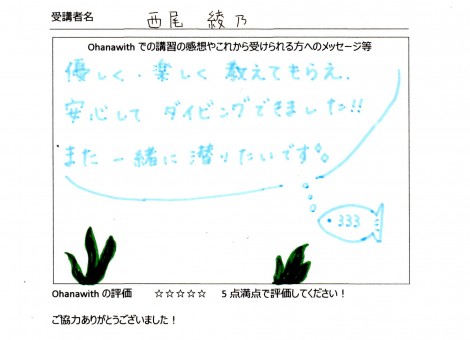 受講者名 西尾 綾乃
Ohanawith での講習の感想やこれから受けられる方へのメッセージ等
優しく・楽しく 教えてもらえ、
安心して ダイビングできました!!
また 一緒に 潜りたいです。
333
Ohanawith の評価 ☆☆☆☆☆ 5 点満点で評価してください！
ご協力ありがとうございました！